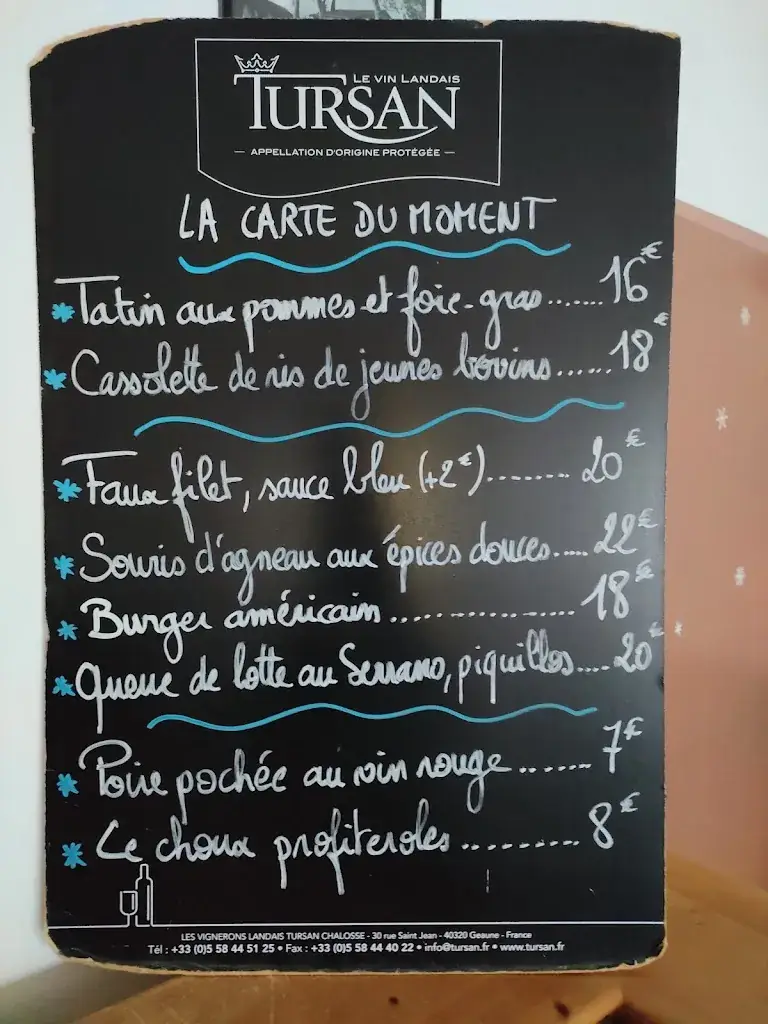 LE VIN LANDAIS
TURSAN
— APPELLATION D'ORIGINE PROTÉGÉE —
LA CARTE DU MOMENT
* Tatin aux pommes et foie-gras.......16€
* Cassolette de ris de jeunes bovins......18€
* Faux filet, sauce bleu (+2€)........ 20€
* Souris d'agneau aux épices douces..... 22€
* Burger américain................ 18€
* Queue de lotte au Serrano, piquillos.... 20€
* Poire pochée au vin rouge....... 7€
* Le choux profiteroles.......... 8€
LES VIGNERONS LANDAIS TURSAN CHALOSSE - 30 rue Saint Jean - 40320 Geaune - France
Tél : +33 (0)5 58 44 51 25 • Fax : +33 (0)5 58 44 40 22 • info@tursan.fr • www.tursan.fr